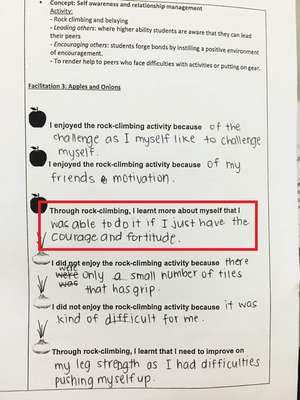 • Concept: Self awareness and relationship management
Activity:
- Rock climbing and belaying
- Leading others: where higher ability students are aware that they can lead
their peers
- Encouraging others: students forge bonds by instilling a positive environment
of encouragement.
- To render help to peers who face difficulties with activities or putting on gear.
Facilitation 3: Apples and Onions
I enjoyed the rock-climbing activity because of the
challenge as I myself like to challenge
myself.
I enjoyed the rock-climbing activity because of my
friends & motivation.
Through rock-climbing, I learnt more about myself that I
was able to do it if I just have the
courage and fortitude.
I did not enjoy the rock-climbing activity because there
were
were only a small number of tiles
was that has grip.
I did not enjoy the rock-climbing activity because it was
kind of difficult for me.
Through rock-climbing, I learnt that I need to improve on
my leg strength as I had difficulties
pushing myself up.